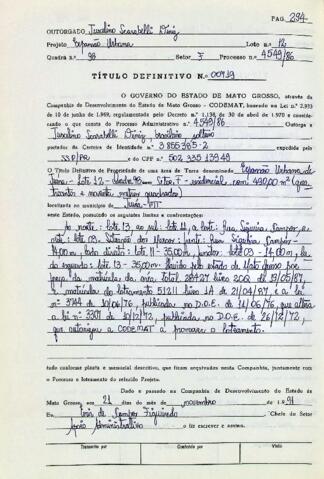 PAG. 294
OUTORGADO Jurolino Scarabelli Diniz
Projeto Expansão Urbana Lote n.º 12
Quadra n.º 98 Setor F Processo n.º 4549/86
TÍTULO DEFINITIVO N.º 00719
O GOVERNO DO ESTADO DE MATO GROSSO, através da
Companhia de Desenvolvimento do Estado de Mato Grosso - CODEMAT, baseado na Lei n.º 2.933
de 10 de junho de 1.969, regulamentado pelo Decreto n.º 1.138 de 30 de abril de 1.970 e conside-
rando o que consta do Processo Administrativo n.º 4549/86 Outorga a
Jurolino Scarabelli Diniz, brasileiro, solteiro
portador da Carteira de Identidade n.º 3.855.385-2 expedida pelo
SSP/PR e do CPF n.º 502 335 139 49
O Título Definitivo de Propriedade de uma área de Terra denominada Expansão Urbana de
Juína - Lote 12 - Quadra 98 - Setor F - residencial, com 490,00 m² (quatro-
centos e noventa metros quadrados)
localizada no município de Juína - MT
neste Estado, possuindo os seguintes limites e confrontações:
Ao norte: lote 13, ao sul: lote 11, a leste: Rua
te: lote 03. frente: Rua
14,00 m, lado direito: lote 11 - 35,00 m, fundos: lote 03 - 14,00 m, la-
do esquerdo: lote 13 - 35,00 m. Havido pelo Estado de Mato Grosso por
força da matrícula da área total
e matrícula do loteamento 51211 livro 2A de 21/04/87, e a lei
nº 3744 de 10/06/76, publicada no D.O.E. de 14/06/76, que altera
a lei nº 3307 de 18/12/72, publicada no D.O.E. de 26/12/72,
que autorizou a CODEMAT a promover o loteamento.
tudo conforme planta e memorial descritivo, que ficam arquivados nesta Companhia, juntamente com
o Processo e loteamento do referido Projeto.
Dado e passado na Companhia de Desenvolvimento do Estado de
Mato Grosso, em 21 dias do mês de novembro de 1.991
Eu Enir de Campos Figueiredo Chefe do Setor
Apoio Administrativo o fiz escrever e assino.
Transcrito por Conferido por Visto